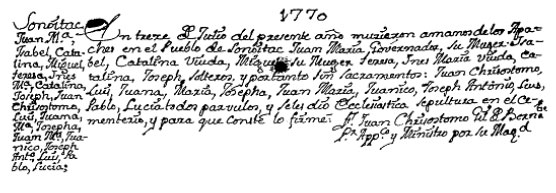 1770
Sonoitac
Juan Mª,
Isabel, Cata-
lina, Miguel,
Teresa, Ines
Mª, Catalina,
Joseph, Juan
Chrisostomo,
Luis, Juana,
Mª, Josepha,
Juan Mª, Jua-
nico, Joseph
Antº, Luis, Pa-
blo, Lucia;
En trece de Junio del presente año murieron a manos de los Apa-
ches en el Pueblo de Sonoitac Juan Maria, Governador, su Muger Isa-
bel, Catalina Viuda, Miguel su Muger Teresa, Ines Maria Viuda, Ca-
talina, Joseph, solteros, y por tanto sin Sacramentos: Juan Chrisostomo,
Luis, Juana, Maria, Josepha, Juan Maria, Juanico, Joseph Antonio, Luis,
Pablo, Lucia todos parvulos, y se les dio Ecclesiastica sepultura en el Ce-
menterio, y para que conste lo firme. Fr. Juan Chrisostomo Gil de Berne
Pr. Appco y Ministro por su Magd